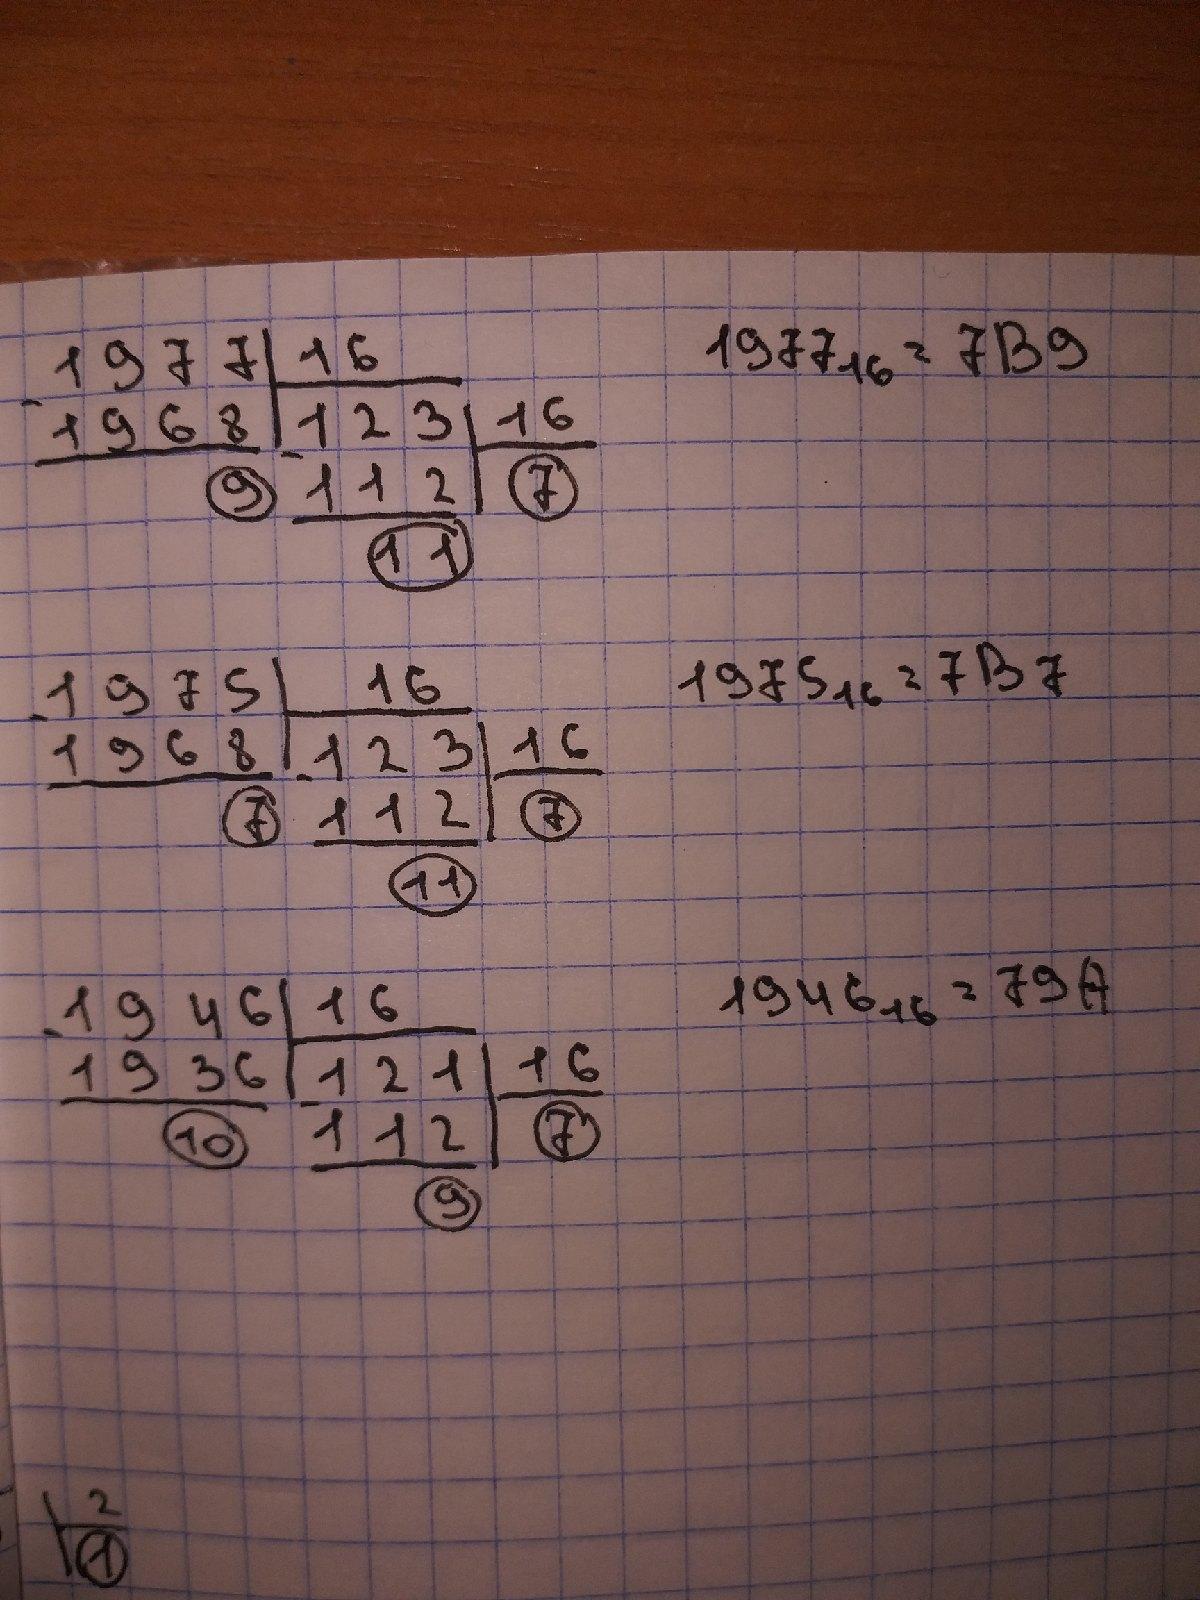 1977 16 1977₁₆ = 7B9
- 1968 123 16
9 - 112 7
11
- 1975 16 1975₁₆ = 7B7
1968 - 123 16
7 112 7
11
- 1946 16 1946₁₆ = 79A
1936 - 121 16
10 112 7
9
2
1